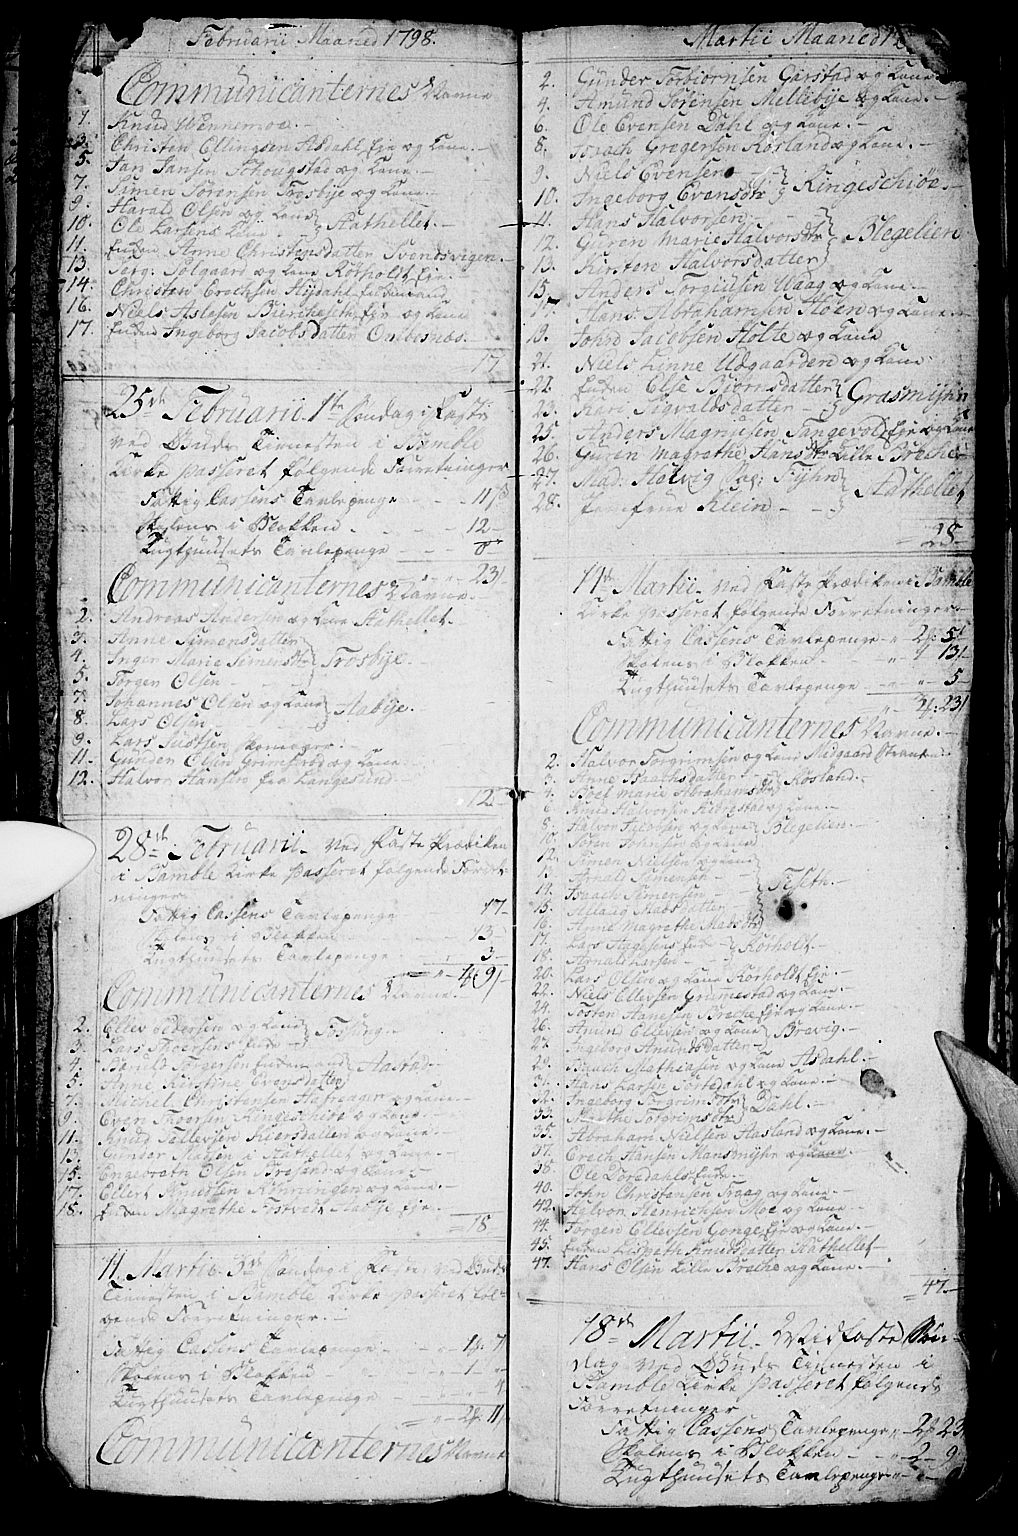 Februarii Maaned 1798.
Communicanternes Navne
1. Knud Wennemoe.
3. Christen Ellingsen Asdahl Eje og Kone.
5. Jan Jansen Schougstad og Kone.
7. Simen Sørensen Trosbije og Kone.
9. Harald Olsen og Kone
10. Ole Larsens Kone } Stathellet.
11. Enken Anne Christensdatter Svendsvigen.
13. Jørg: Solgaard og Kone Rørholt Eje.
14. Christen Erichsen
16. Niels Aslesen og Kone
17. Enken Ingeborg Jacobsdatter
17
25de Februarii. 1te Søndag i Faste
ved Guds Tienesten i Bamble
Kirke passeret følgende Forretninger
Fattig Cassens Tavlepenge - 11
Skolens i Blokken - 12
Tugthuusets Tavlepenge
23
Communicanternes Navne.
2. Andreas Andersen og Kone Stathellet.
3. Anne Simensdatter
4. Inger Marie Simensdtr } Trosbije.
5. Jørgen Olsen
7. Johannes Olsen og Kone } Aabije.
8. Lars Olsen
9. Lars Justsen
11. Gunder Olsen Grimestad og Kone.
12. Halvor Hansen fra Langesund.
12
28de Februarii. Ved Faste Prædiken
i Bamble Kirke passeret følgende Forret-
ninger
Fattig Cassens Tavlepenge 17
Skolens i Blokken 13
Tugthuusets Tavlepenge 3
1 9
Communicanternes Navne.
2. Ellev Pedersen og Kone } Fossing.
3. Lars
4. Torgersen } Aastad.
5. Anne Kirstine Evensdatter
7. Michel Christensen Hafsager og Kone.
9. Even Thorsen Ringeschiøe og Kone.
11. Knud Tellevsen Kiersdallen og Kone.
13. Gunder Madsen i Stathellet og Kone.
15. Engebreth Olsen og Kone.
17. Ellert Knudsen Rønningen og Kone.
18. Enken Magrethe Tostveit Aabije Eje.
18
11. Martii. 3de Søndag i Faste ved Guds
Tienesten i Bamble Kirke passeret føl-
gende Forretninger.
Fattig Cassens Tavlepenge - 1 7
Skolens i Blokken - 1
Tugthuusets Tavlepenge 4
2 11
Communicanternes Navne
Martii Maaned
2. Gunder Torbiørnsen Garstad og Kone
4. Amund Sørensen Mellebije og Kone.
6. Ole Evensen Dahl og Kone.
8. Isach Gregersen Rosland og Kone.
9. Niels Evensen
10. Ingeborg Evensdtr } Ringeschiøe.
11. Hans Halvorsen
12. Guren Marie Halvorsdtr } Blegelien
13. Kirsten Halvorsdatter
15. Anders Torgiusen Vaag og Kone.
17. Hans Abrahamsen Stoen og Kone.
19. John Jacobsen Holte og Kone
21. Niels Linne Udgaarden og Kone
22. Enken Else Biørnsdatter } Grasmijhr
23. Kari Sigvaldsdatter
25. Anders Magnusen Tangevold Eje og Kone
26. Guren Magrethe Hansdtr Lille Brække
27. Mad: Holvig Sal: Fijhn } Stathellet
28. Jomfrue Klein
28.
14de Martii Ved Faste Prædiken i Bamble
Kirke passeret følgende Forretninger
Fattig Cassens Tavlepenge 2 5
Skolens i Blokken 13
Tugthuusets Tavlepenge 5
23
Communicanternes Navne.
2. Halvor Torgrimsen og Kone Midgaard
3. Anne Isachsdatter } Rosland.
4. Boel Marie Abrahamsdtr
6. Knud Halvorsen og Kone.
8. Halvor Jacobsen og Kone } Blegelien.
10. Søren Johnsen og Kone
12. Simen Nielsen og Kone
13. Arnold Simensen
14. Isach Simensen
15. Aslaug Madsdatter } Feseth.
16. Anne Magrethe Madsdtr
17. Lars Aagesens Enke } Rørholt.
18. Arnold Larsen
20. Lars Olsen og Kone Rørholt Eje.
22. Niels Ellevsen Grimestad og Kone.
24. Tosten Hansen Brække Eje og Kone.
26. Amund Ellevsen og Kone } Brevig.
27. Ingeborg Amundsdatter
29. Isach Mathiasen og Kone Asdahl.
31. Hans Larsen Tørtedahl og Kone.
32. Ingeborg Torgrimsdtr } Dahl.
33. Marthe Torgrimsdtr
35. Abraham Nielsen Aasland og Kone.
37. Erich Hansen Mansmijhr og Kone.
38. Ole Dørdahls Enke
40. John Christensen Traag og Kone.
42. Halvor Henrichsen Moe og Kone.
44. Jørgen Ellevsen Gonge Eje og Kone.
45. Enken Lisbeth Knudsdatter Stathellet
47. Hans Olsen Lille Brække og Kone.
47.
18de Martii. Midfaste Søn-
dag ved Guds Tienesten i
Bamble Kirke passeret følgende
Forretninger
Fattig Cassens Tavlepenge 2 23
Skolens i Blokken 2 9
Tugthuusets Tavlepenge